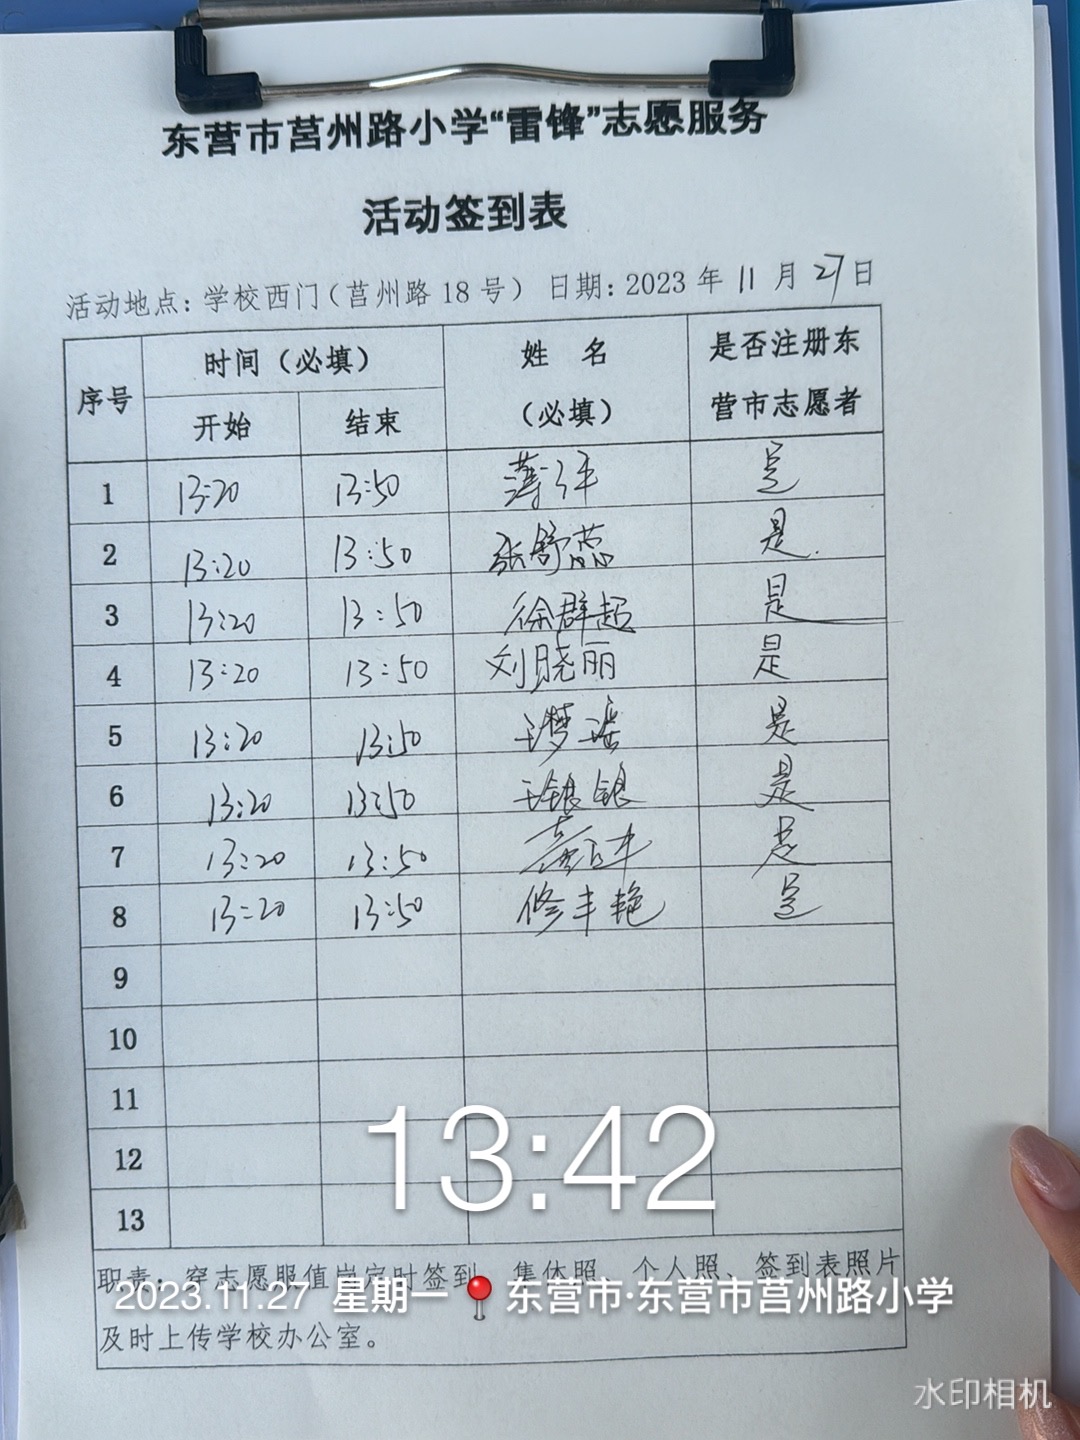 东营市莒州路小学“雷锋”志愿服务
活动签到表
活动地点：学校西门（莒州路18号） 日期：2023年11月27日
序号 时间（必填） 姓 名（必填） 是否注册东营市志愿者
开始 结束
1 13:20 13:50 是
2 13:20 13:50 张舒蕊 是
3 13:20 13:50 徐群超 是
4 13:20 13:50 刘晓丽 是
5 13:20 13:50 王梦瑶 是
6 13:20 13:50 王银银 是
7 13:20 13:50 是
8 13:20 13:50 修丰艳 是
9
10
11
12
13
13:42
职责：穿志愿服值岗定时签到、集体照、个人照、签到表照片
2023.11.27 星期一 东营市·东营市莒州路小学
及时上传学校办公室。
水印相机